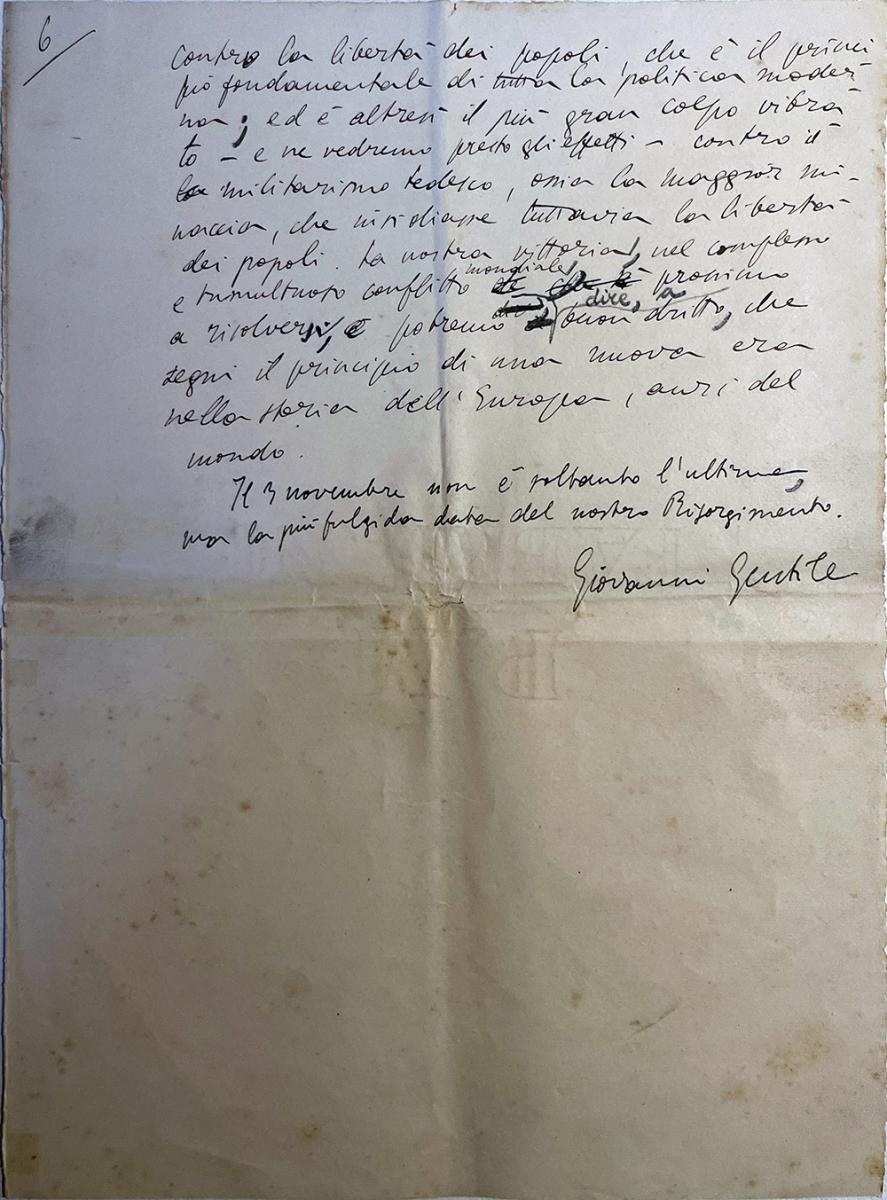 6
contro la libertà dei popoli, che è il princi
pio fondamentale di tutta la politica moder
na; ed è altresì il più gran colpo vibra
to – e ne vedremo presto gli effetti – contro il
la militarismo tedesco, ossia la maggior mi-
naccia, che insidiasse tuttavia la libertà
dei popoli. La nostra vittoria, nel complesso
e tumultuoso conflitto mondiale, che è prossimo
a risolversi, potremo dire, a buon dritto, che
segni il principio di una nuova era
nella storia dell'Europa, anzi del
mondo.
Il 3 novembre non è soltanto l'ultima,
ma la più fulgida data del nostro Risorgimento.
Giovanni Gentile